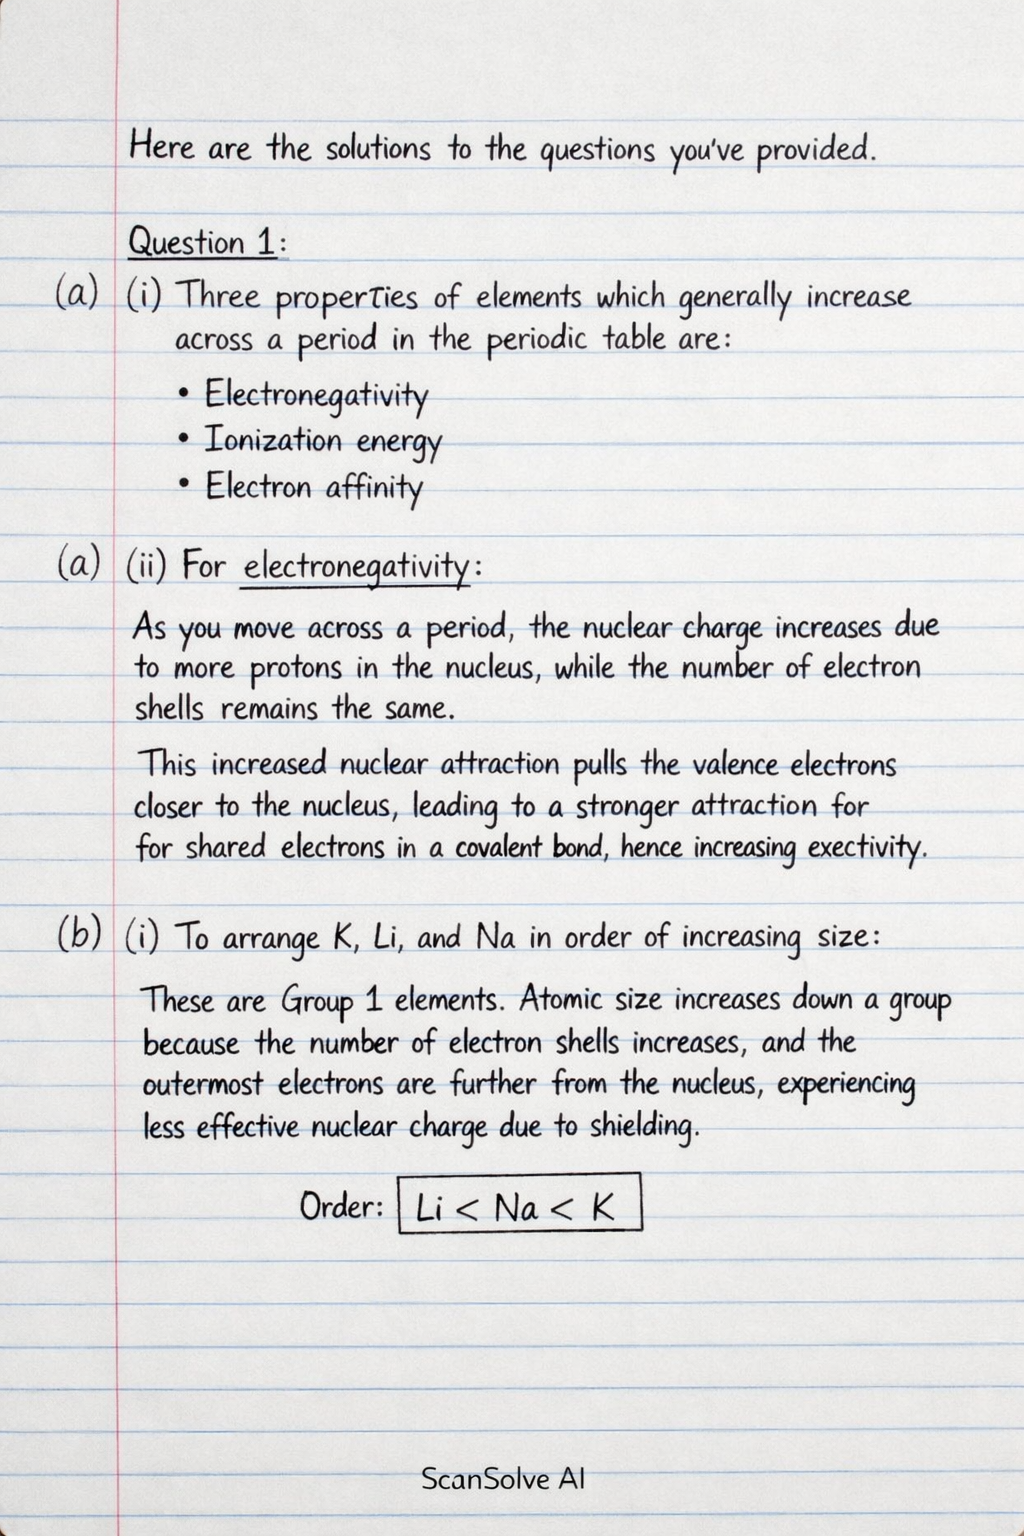 Here are the solutions to the questions you've provided.
Question 1:
(a) (i) Three properties of elements which generally increase
across a period in the periodic table are:
• Electronegativity
• Ionization energy
• Electron affinity
(a) (ii) For electronegativity:
As you move across a period, the nuclear charge increases due
to more protons in the nucleus, while the number of electron
shells remains the same.
This increased nuclear attraction pulls the valence electrons
closer to the nucleus, leading to a stronger attraction for
for shared electrons in a covalent bond, hence increasing exectivity.
(b) (i) To arrange K, Li, and Na in order of increasing size:
These are Group 1 elements. Atomic size increases down a group
because the number of electron shells increases, and the
outermost electrons are further from the nucleus, experiencing
less effective nuclear charge due to shielding.
Order: Li < Na < K
ScanSolve AI